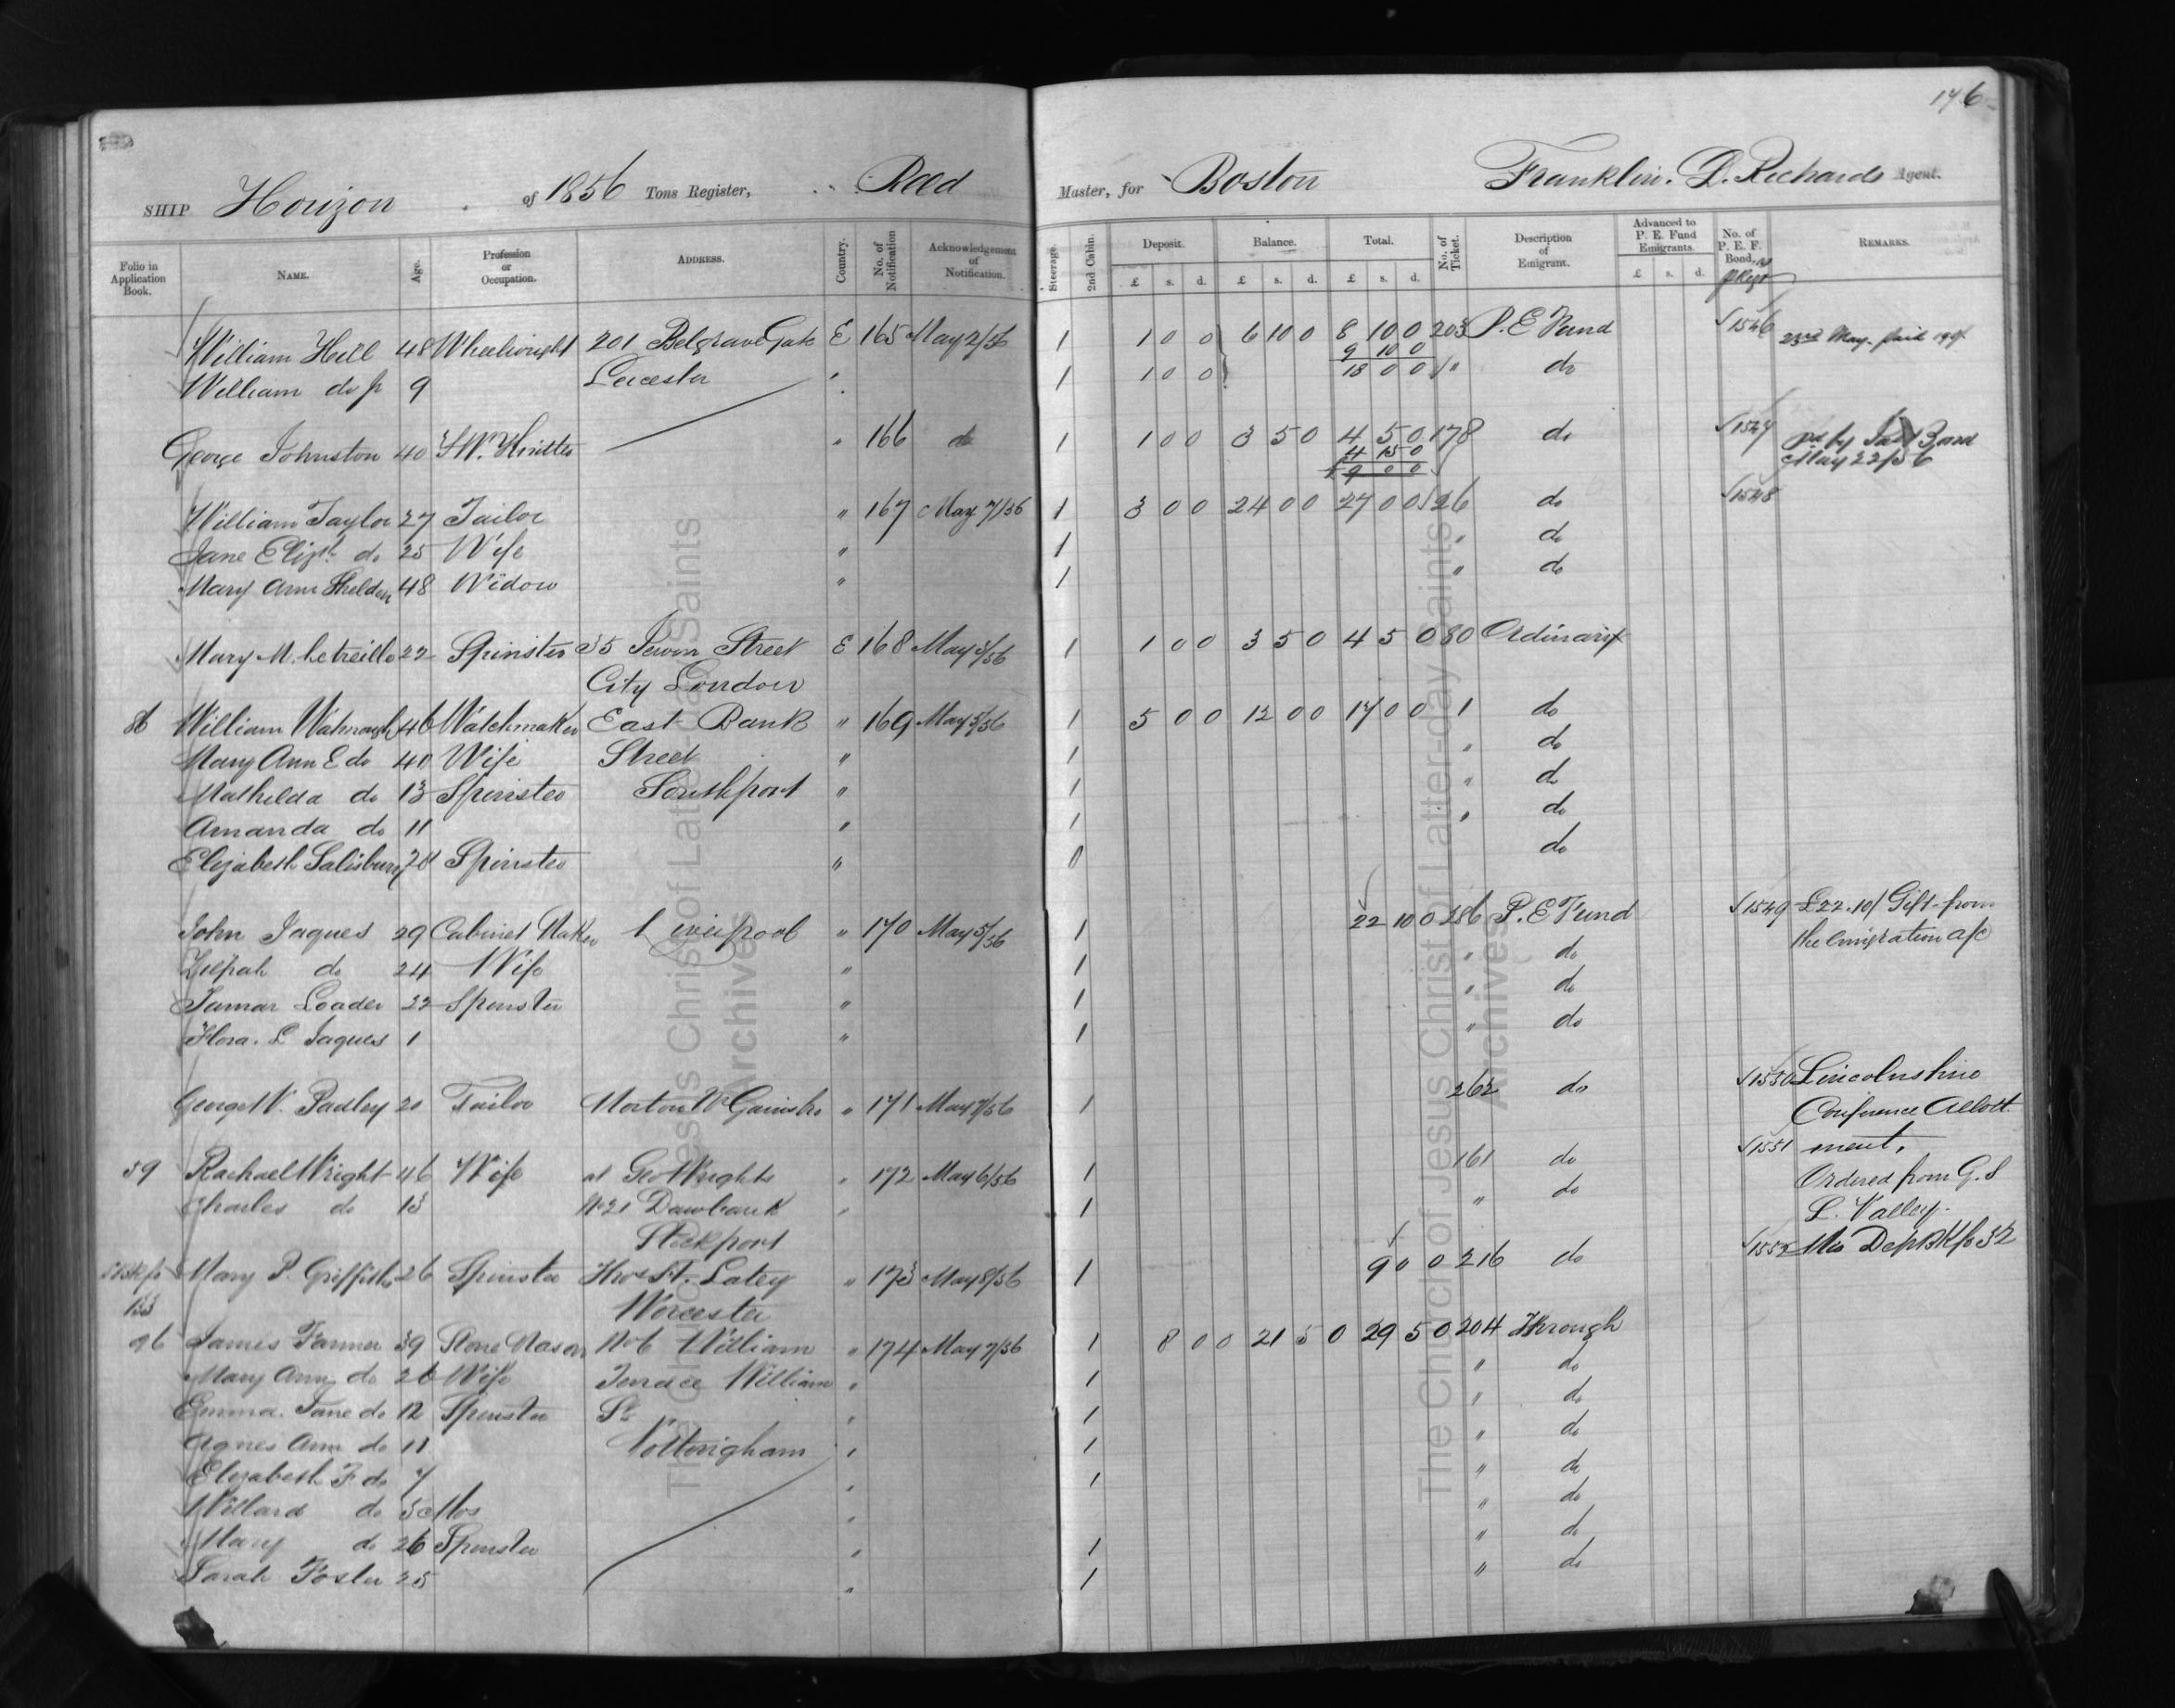 176
SHIP Horizon of 1856 Tons Register, Reed Master, for Boston Franklin. D. Richards Agent.
Folio in Application Book. NAME. Age. Profession or Occupation. ADDRESS. Country. No. of Notification Acknowledgement of Notification. Steerage. 2nd Cabin. Deposit. £ s. d. Balance. £ s. d. Total. £ s. d. No. of Ticket. Description of Emigrant. Advanced to P. E. Fund Emigrants. £ s. d. No. of P. E. F. Bond. REMARKS.
William Hill 48 Wheelwright 201 Belgrave Gate E 165 May 2/56 1 1 0 0 6 10 0 8 10 0 203 P. E Fund 1546 23rd May. paid
9 10 0
William do jr 9 Leicester " 1 1 0 0 18 0 0 " do
George Johnston 40 " 166 do 1 1 0 0 3 5 0 4 5 0 178 do 1547 pd by Bond
4 15 0 May 22/56
9 0 0
William Taylor 27 Tailor " 167 May 7/56 1 3 0 0 24 0 0 27 0 0 126 do 1548
Jane Elizth do 25 Wife " 1 " do
Mary Ann Sheldon 48 Widow " 1 " do
Mary M. Letreille 22 Spinster 35 Jewin Street E 168 May 5/56 1 1 0 0 3 5 0 4 5 0 80 Ordinary
City London
86 William Watmough 46 Watchmaker East Bank " 169 May 5/56 1 5 0 0 12 0 0 17 0 0 1 do
Mary Ann E do 40 Wife Street " 1 " do
Mathilda do 13 Spinster Southport " 1 " do
Amanda do 11 " 1 " do
Elizabeth Salisbury Spinster " 0 do
John Jaques 29 Cabinet Maker Liverpool " 170 May 5/56 1 22 10 0 186 P. E Fund 1549 £22.10/ Gift from
the Emigration a/c
Zilpah do 24 Wife " 1 " do
Tamar Loader 22 Spinster " 1 " do
Flora. L Jaques 1 " 1 " do
George W. Padley 20 Tailor Morton Nr Gainsbro " 171 May 7/56 1 262 do 1550 Lincolnshire
Conference Allott
ment.
59 Rachael Wright 46 Wife at Geo Wrights " 172 May 6/56 1 161 do 1551 Ordered from G. S
Charles do 13 No 21 Dawbank " 1 " do L. Valley.
Stockport
Mary P. Griffiths 26 Spinster Thos. Latey " 173 May 8/56 1 9 0 0 216 do 1552 Mis Dep BK fo 32
133 Worcester
96 James Farmer 39 Stone Mason No 6 William " 174 May 7/56 1 8 0 0 21 5 0 29 5 0 204 Through
Mary Ann do 26 Wife Terrace William " 1 " do
Emma Jane do 12 Spinster St " 1 " do
Agnes Ann do 11 Nottingham " 1 " do
Elizabeth F do 7 " 1 " do
Willard do 3 Mos " " do
Mary do 26 Spinster " 1 " do
Sarah Foster 25 " 1 " do
The Church of Jesus Christ of Latter-day Saints
Archives
The Church of Jesus Christ of Latter-day Saints
Archives